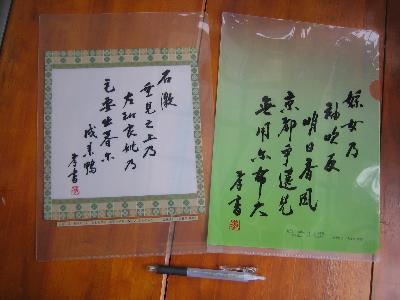 石激
垂見之上乃
左和良妣乃
毛要出春尓
成来鴨
孝書
婇女乃
袖吹反
明日香風
京都乎遠見
無用尓布久
孝書